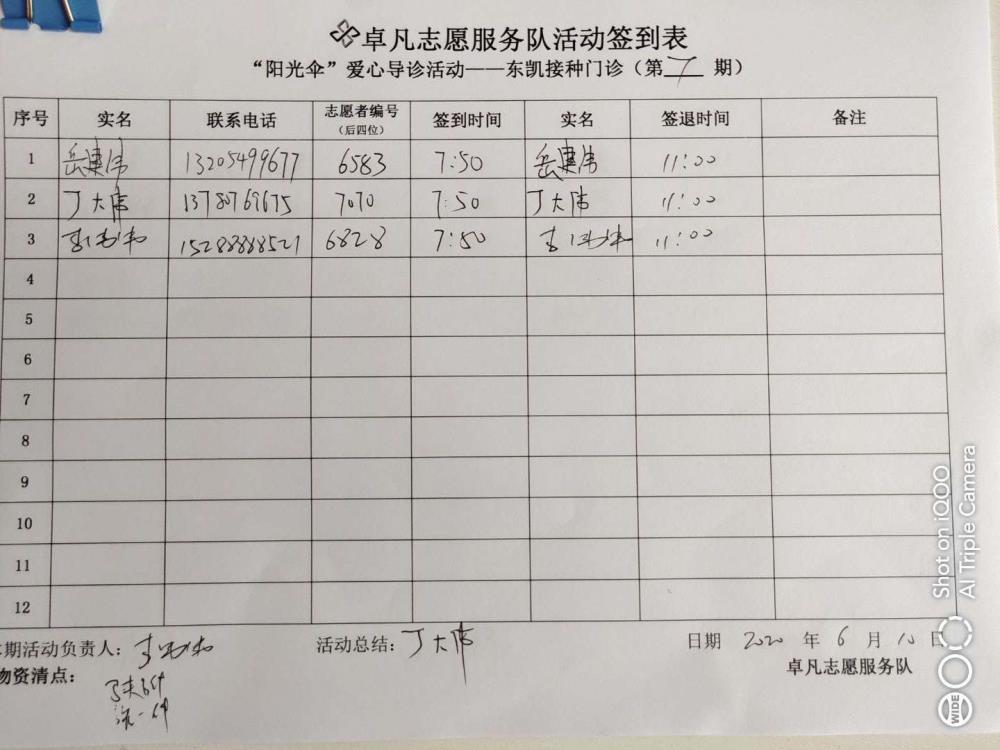 卓凡志愿服务队活动签到表
“阳光伞”爱心导诊活动——东凯接种门诊（第 期）
序号 实名 联系电话 志愿者编号（后四位） 签到时间 实名 签退时间 备注
1 岳建伟 13205499677 6583 7:50 岳建伟 11:00
2 丁大伟 13780769675 7070 7:50 丁大伟 11:00
3 15288888521 6828 7:50 11:00
4
5
6
7
8
9
10
11
12
期活动负责人： 活动总结：丁大伟 日期 2020 年 6 月 10 日
物资清点： 卓凡志愿服务队
Shot on iQOO
AI Triple Camera
WIDE